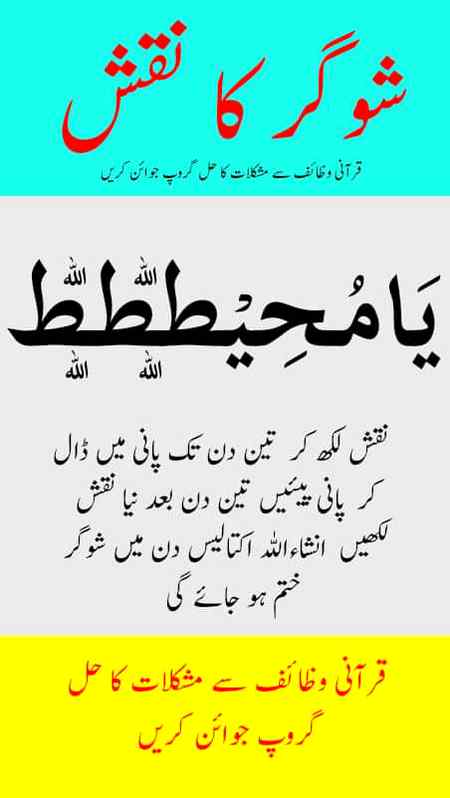 شوگر کا نقش
قرآنی وظائف سے مشکلات کا حل گروپ جوائن کریں
الله الله
یَامُحِیْططط
الله الله
نقش لکھ کر تین دن تک پانی میں ڈال
کر پانی پیئیں تین دن بعد نیا نقش
لکھیں انشاءالله اکتالیس دن میں شوگر
ختم ہو جائے گی
قرآنی وظائف سے مشکلات کا حل
گروپ جوائن کریں